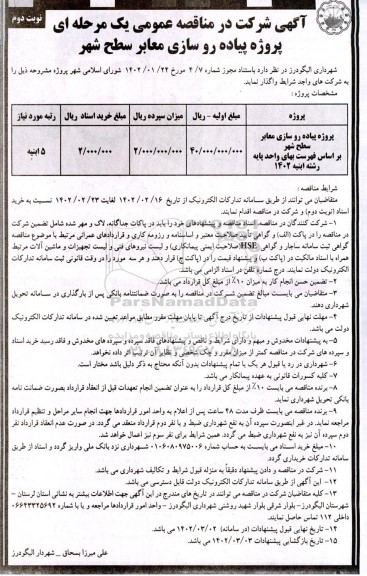 نوبت دوم
آگهی شرکت در مناقصه عمومی یک مرحله ای
پروژه پیاده رو سازی معابر سطح شهر
شهرداری الیگودرز در نظر دارد باستناد مجوز شماره ۴/۷ مورخ ۱۴۰۲/۰۱/۲۴ شورای اسلامی شهر پروژه مشروحه ذیل را
به شرکت های واجد شرایط واگذار نماید.
مشخصات پروژه :
پروژه
مبلغ اولیه - ریال
میزان سپرده ریال
مبلغ خرید اسناد ریال
رتبه مورد نیاز
پروژه پیاده رو سازی معابر
سطح شهر
بر اساس فهرست بهای واحد پایه
رشته ابنیه ۱۴۰۲
۴۰/۰۰۰/۰۰۰/۰۰۰
۲/۰۰۰/۰۰۰/۰۰۰
۲/۰۰۰/۰۰۰
۵ ابنیه
شرایط مناقصه :
متقاضیان می توانند از طریق سامانه تدارکات الکترونیک از تاریخ ۱۴۰۲/۰۲/۱۶ لغایت ۱۴۰۲/۰۲/۲۳ نسبت به خرید
اسناد (نوبت دوم) و شرکت در مناقصه اقدام نمایند.
۱- شرکت کنندگان در مناقصه اسناد مناقصه و پیشنهادهای خود را باید در پاکات جداگانه، لاک و مهر شده شامل تضمین شرکت
در مناقصه را در پاکت (الف) و گواهی تایید صلاحیت معتبر و اساسنامه و رزومه کاری و قراردادهای عمرانی مرتبط با موضوع مناقصه
گواهی ثبت سامانه ساجار و گواهی HSE (صلاحیت ایمنی پیمانکاری) و لیست نیروهای فنی و لیست تجهیزات و ماشین آلات مرتبط
همراه با اسناد مالکیت در (پاکت ب) و پیشنهاد قیمت را در (پاکت ج) قرار دهند و هر سه مورد را در وقت قانونی ثبت سامانه تدارکات
الکترونیک دولت نمایند. درج شماره تلفن در اسناد الزامی می باشد.
۲- تضمین حسن انجام کار به میزان ۱۰٪ از مبلغ کل قرارداد می باشد.
۳- متقاضیان می بایست مبالغ تضمین شرکت در مناقصه را به صورت ضمانتنامه بانکی پس از بارگذاری در سامانه تحویل
شهرداری دهند.
۴- مهلت نهایی قبول پیشنهادات از تاریخ درج آگهی تا پایان مهلت مقرر مطابق مواعد تعیین شده در سامانه تدارکات الکترونیک
دولت می باشد.
۵- به پیشنهادات مخدوش و مبهم و دارای شرایط و ناقص و پیشنهادهای فاقد سپرده و سپرده های مخدوش و فاقد رسید خرید اسناد
و سپرده های شرکت در مناقصه کمتر از میزان مقرر و چک شخصی و نظایر آن ترتیب اثر داده نخواهد.
۶- شهرداری در رد یا قبول هر یک یا تمام پیشنهادات بدون آنکه محتاج به ذکر دلیل باشد مختار است.
۷- کلیه کسورات قانونی به عهده پیمانکار می باشد.
۸- برنده مناقصه می بایست ۱۰٪ از مبلغ کل قرارداد را به عنوان تضمین انجام تعهدات قبل از انعقاد قرارداد بصورت ضمانت نامه
بانکی تحویل شهرداری نماید.
۹- برنده مناقصه می بایست ظرف مدت ۴۸ ساعت پس از اعلام به واحد امور قراردادها جهت انجام سایر مراحل و تنظیم قرارداد
مراجعه نماید. در غیر اینصورت سپرده آن به نفع شهرداری ضبط و با نفر دوم قرارداد منعقد می گردد. در صورت عدم انعقاد قرارداد نفر
دوم سپرده آن نیز به نفع شهرداری ضبط می گردد. همین شرایط برای نفر سوم نیز اعمال خواهد شد.
۱۰- مبلغ خرید اسناد می بایست به حساب شماره ۰۱۰۶۰۸۰۹۷۵۰۰۶ شهرداری نزد بانک ملی واریز گردد و اسناد از طریق
سامانه تدارکات خریداری گردد.
۱۱- شرکت در مناقصه و دادن پیشنهاد دقیقاً به منزله قبول شرایط و تکالیف شهرداری می باشد.
۱۲- این آگهی از طریق سامانه تدارکات الکترونیک دولت قابل دسترسی می باشد.
۱۳- کلیه متقاضیان شرکت در مناقصه می توانند در تاریخ های مندرج در این آگهی جهت اطلاعات بیشتر به نشانی استان لرستان -
شهرستان الیگودرز- بلوار شرقی بلوار شهید روشنی شهرداری الیگودرز - واحد امور قراردادها مراجعه و یا با شماره ۰۶۶۴۳۳۲۵۶۹۲
داخلی ۱۱۲ تماس حاصل نمایند.
۱۴- تاریخ نهایی قبول پیشنهادات (در سامانه) ۱۴۰۲/۰۳/۰۲ می باشد.
۱۵- تاریخ بازگشایی پیشنهادات ۱۴۰۲/۰۳/۰۳ می باشد.
علی میرزا بسحاق _ شهردار الیگودرز